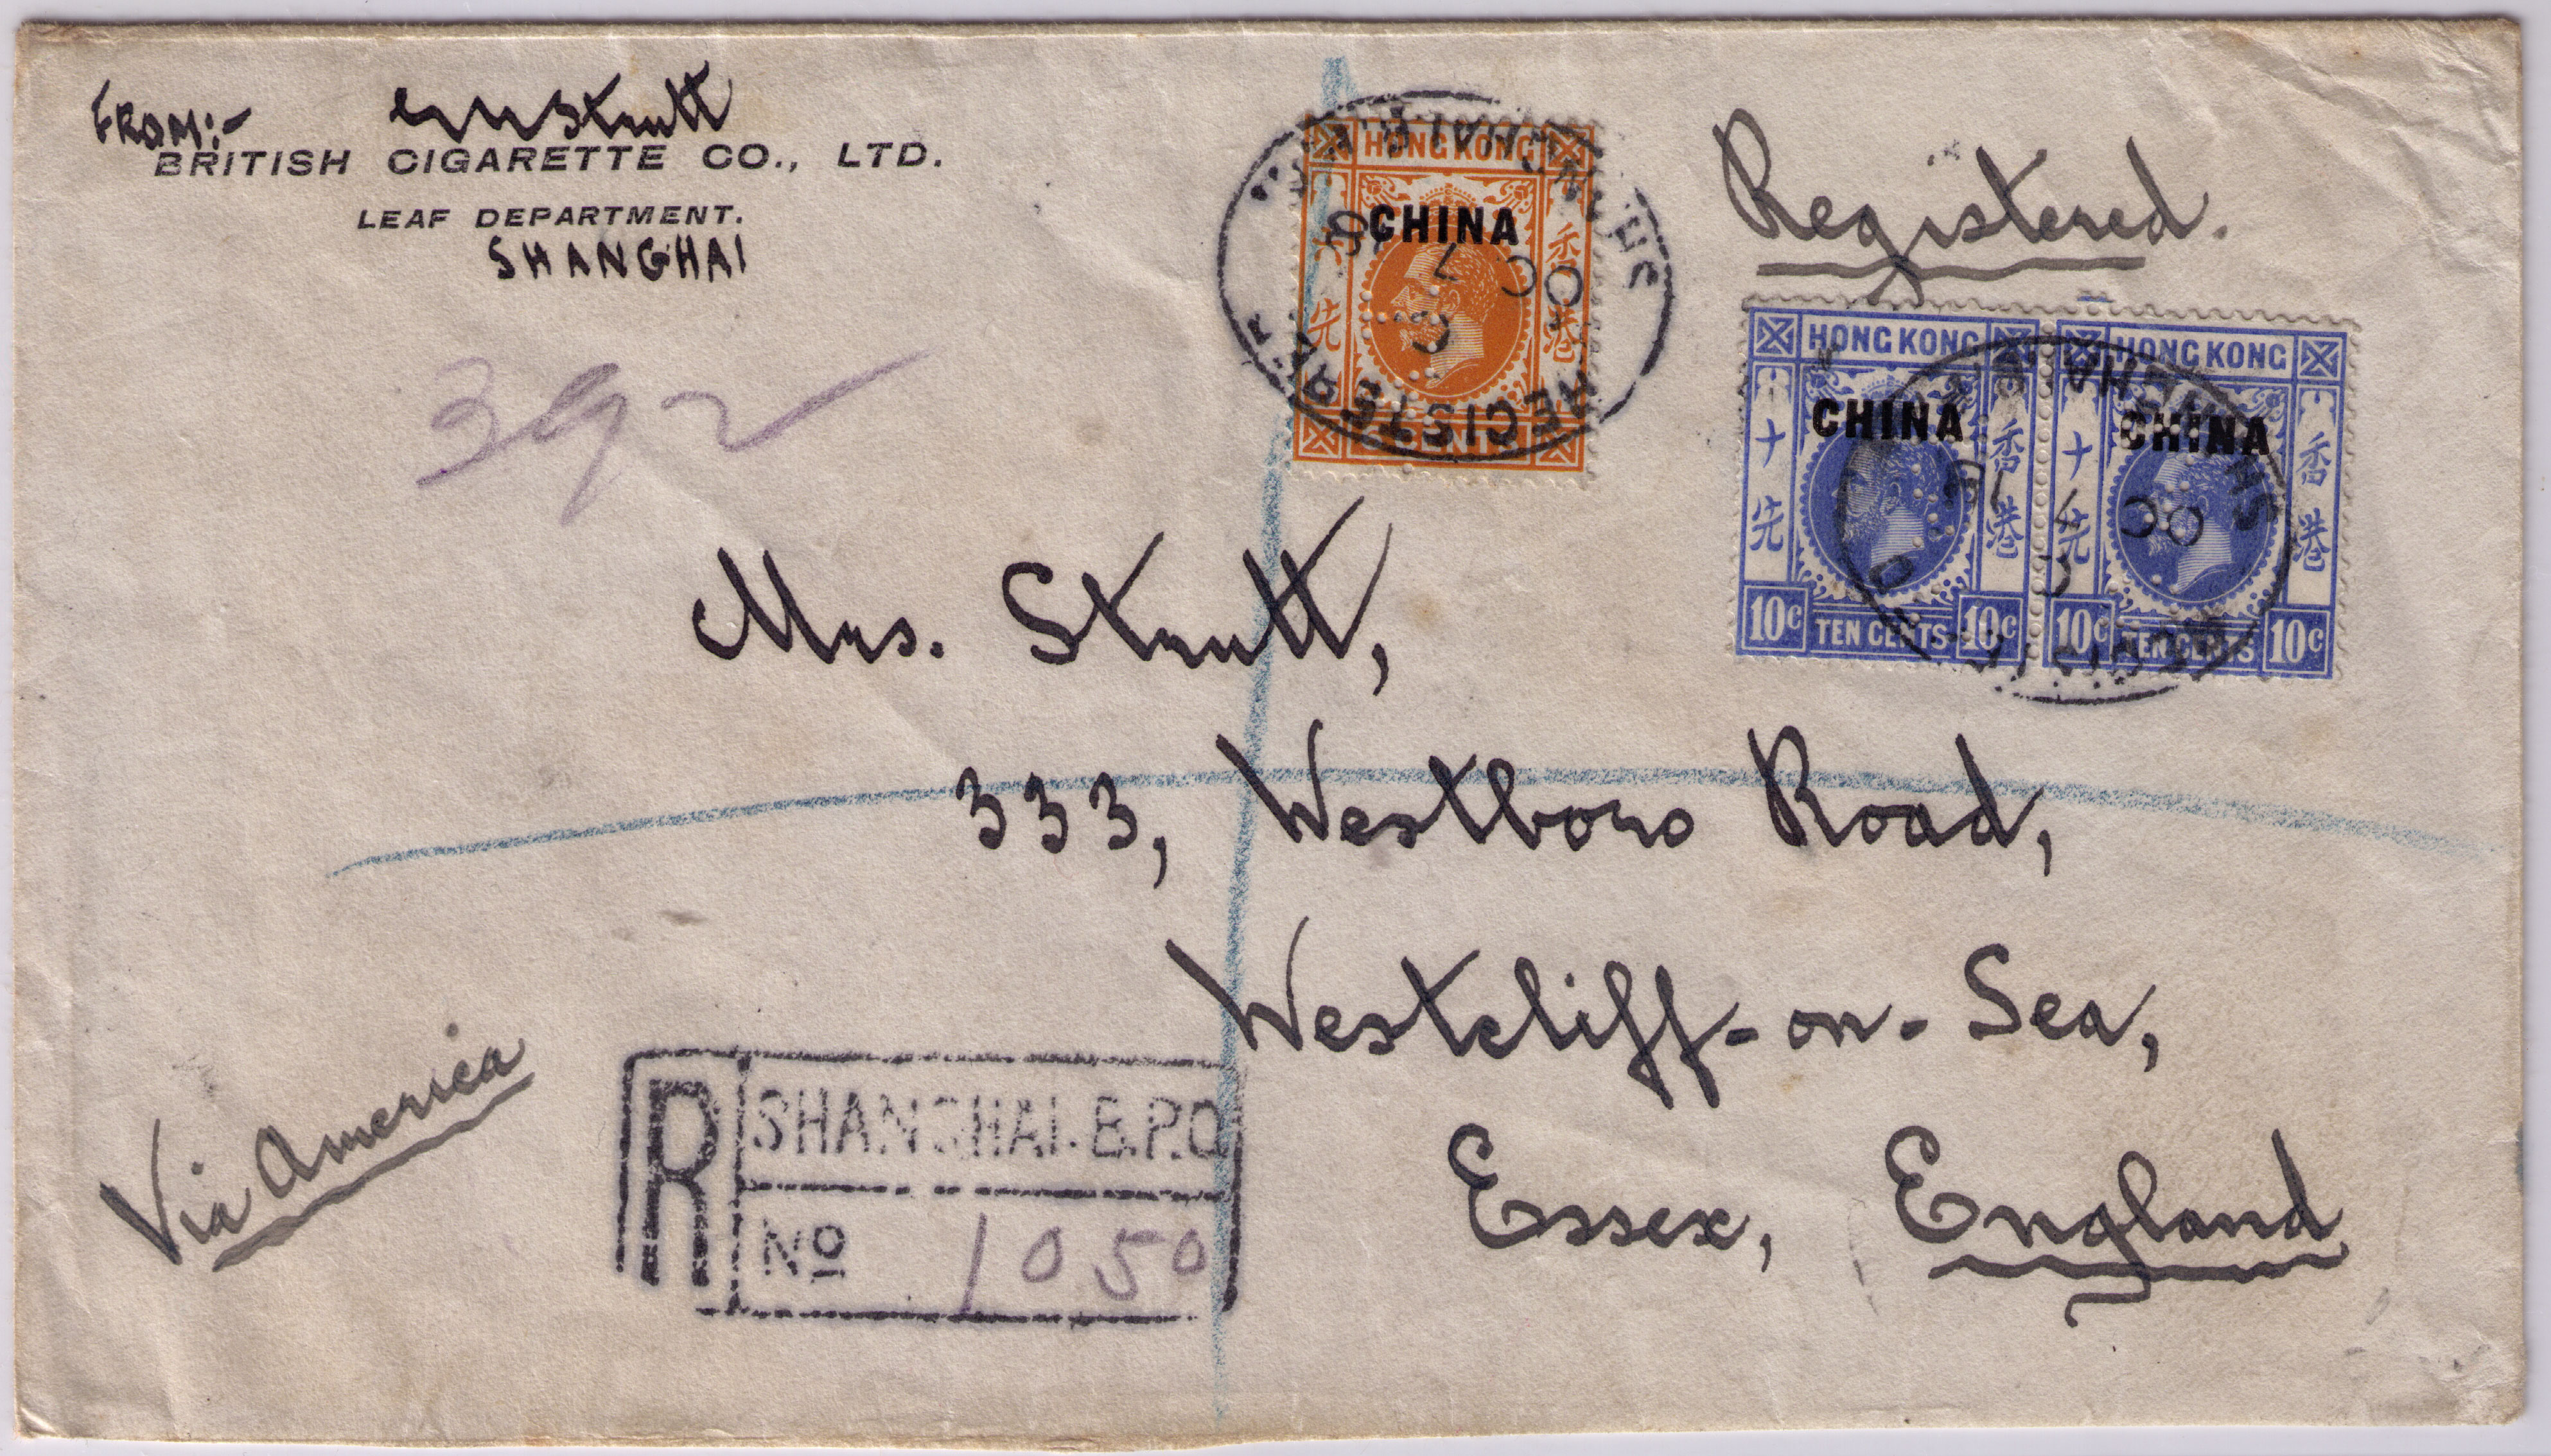 FROM:- Strutt
BRITISH CIGARETTE CO., LTD.
LEAF DEPARTMENT.
SHANGHAI
392
HONG KONG
CHINA
香港
先
CENTS
Registered.
HONG KONG HONG KONG
CHINA CHINA
十先 香港 十先 香港
10c TEN CENTS 10c 10c TEN CENTS 10c
Mrs. Strutt,
333, Westboro Road,
Westcliff-on-Sea,
Essex, England
Via America
R SHANGHAI. B.P.O
No 1050